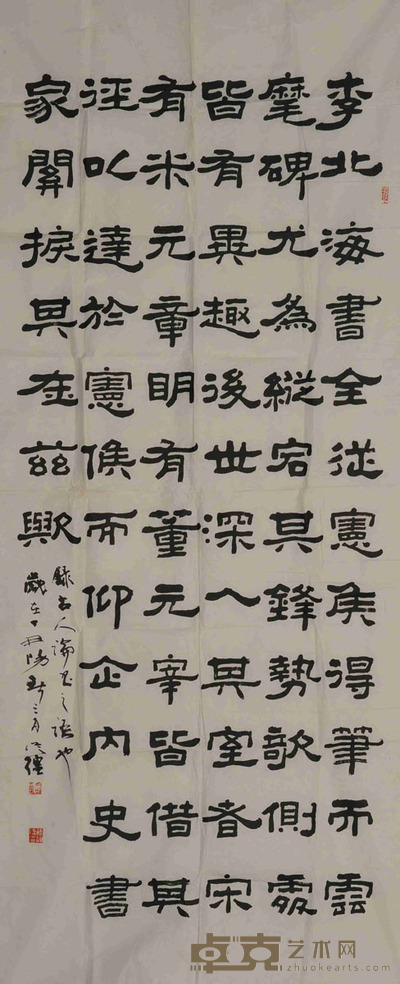 李北海書全從憲侯得筆而雲
麾碑尤為縱宕其鋒勢欹側處
皆有異趣後世深入其室者宋
有米元章明有董元宰皆借其
徑以達於憲侯而仰企內史書
家關捩其在茲歟
錄古人論書之語也
歲在丁丑陽春三月
卓克艺术网
zhuokearts.com